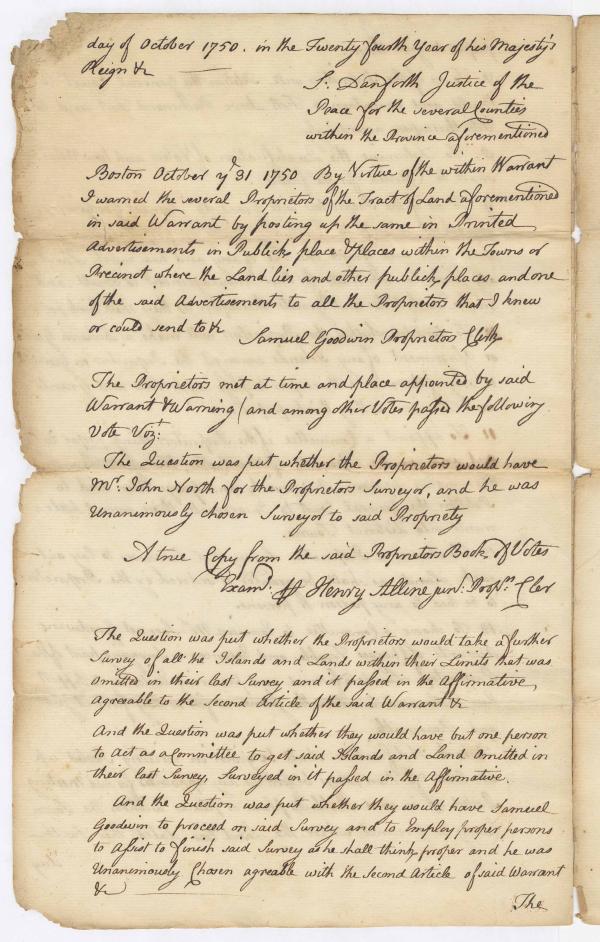 day of October 1750. in the Twenty fourth Year of his Majesty's
Reign &c
S. Danforth Justice of the
Peace for the several Counties
within the Province aforementioned
Boston October yͤ 31 1750 By Virtue of the within Warrant
I warned the several Proprietors of the Tract of Land aforementioned
in said Warrant by posting up the same in Printed
Advertisements in Publick place & places within the Towns or
Precinct where the Land lies and other publick places and one
of the said Advertisements to all the Proprietors that I knew
or could send to &c
Samuel Goodwin Proprietors Clerk
The Proprietors met at time and place appointed by said
Warrant & Warning (and among other Votes passed the following
Vote Vozt:
The Question was put whether the Proprietors would have
Mr. John North for the Proprietors Surveyor, and he was
Unanimously chosen Surveyor to said Propriety
A true Copy from the said Proprietors Book of Votes
Examd. Henry Alline junr: Proprs Cler
The Question was put whether the Proprietors would take a further
Survey of all the Islands and Lands within their Limits that was
omitted in their last Survey and it passed in the Affirmative,
agreeable to the Second Article of the said Warrant &c
And the Question was put whether they would have but one person
to Act as a Committee to get said Islands and Land Omitted in
their last Survey, Surveyed in It passed in the Affirmative.
And the Question was put whether they would have Samuel
Goodwin to proceed on said Survey and to Employ proper persons
to Assist to finish said Survey as he shall think proper and he was
Unanimously Chosen agreable with the Second Article of said Warrant
&c
The